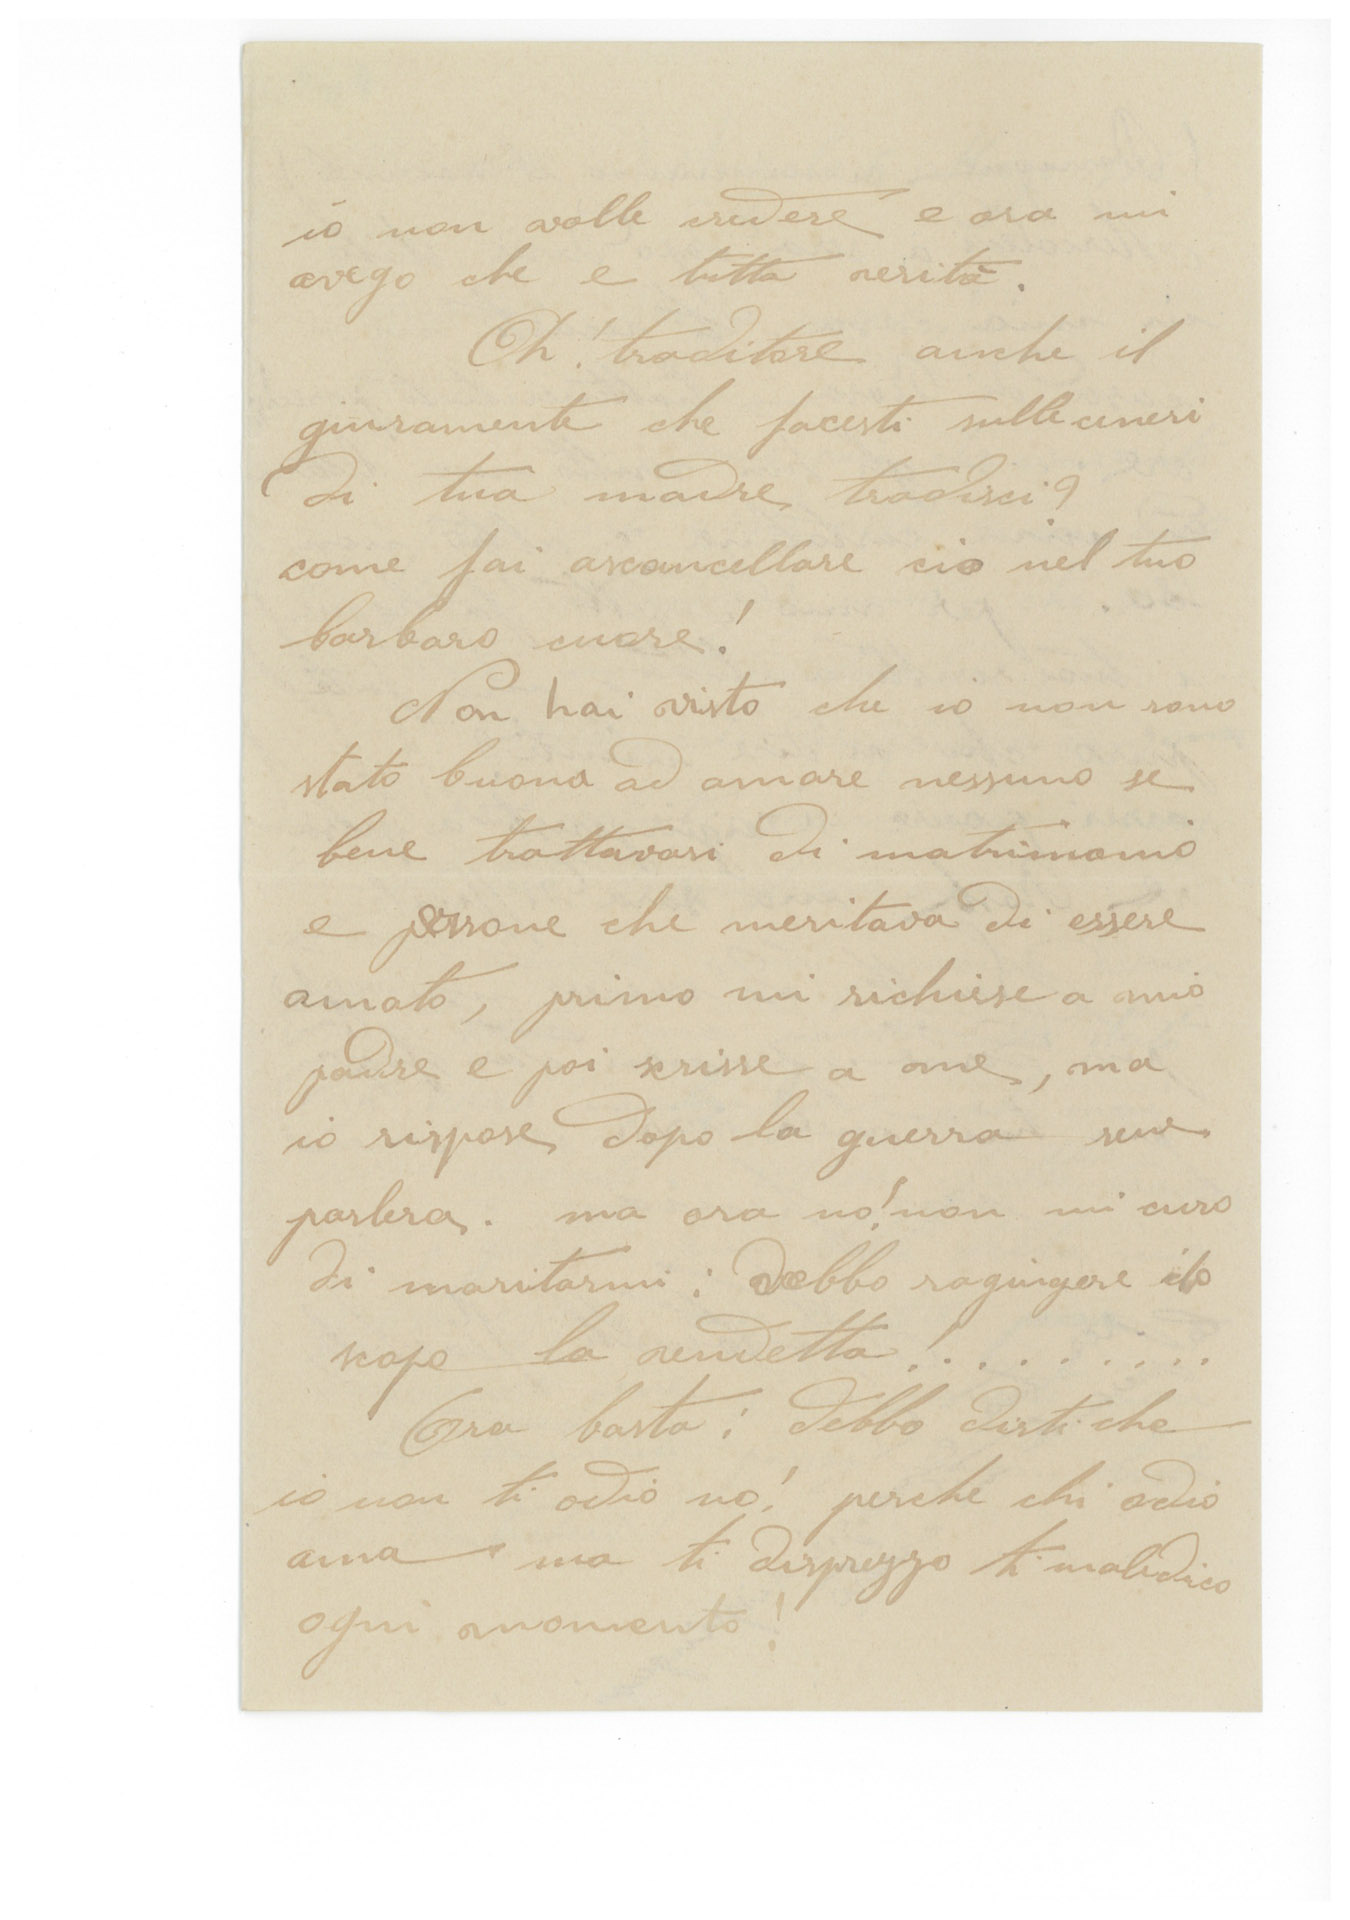 io non volle credere e ora mi
avego che e tutta verità.
Oh! traditore anche il
giuramente che facesti sulle ceneri
di tua madre tradisci?
come fai ascancellare cio nel tuo
barbaro cuore!
Non hai visto che io non sono
stato buona ad amare nessuno se
bene trattavasi di matrimonio
e persone che meritava di essere
amato, primo mi richiese a mio
padre e poi scrisse a me, ma
io rispose dopo la guerra sene
parlera. ma ora no! non mi curo
di maritarmi; debbo ragiugere lo
scopo la vendetta! . . . . . . . . .
Ora basta; debbo dirti che
io non ti odio no! perche chi odio
ama ma ti disprezzo ti maledico
ogni momento!